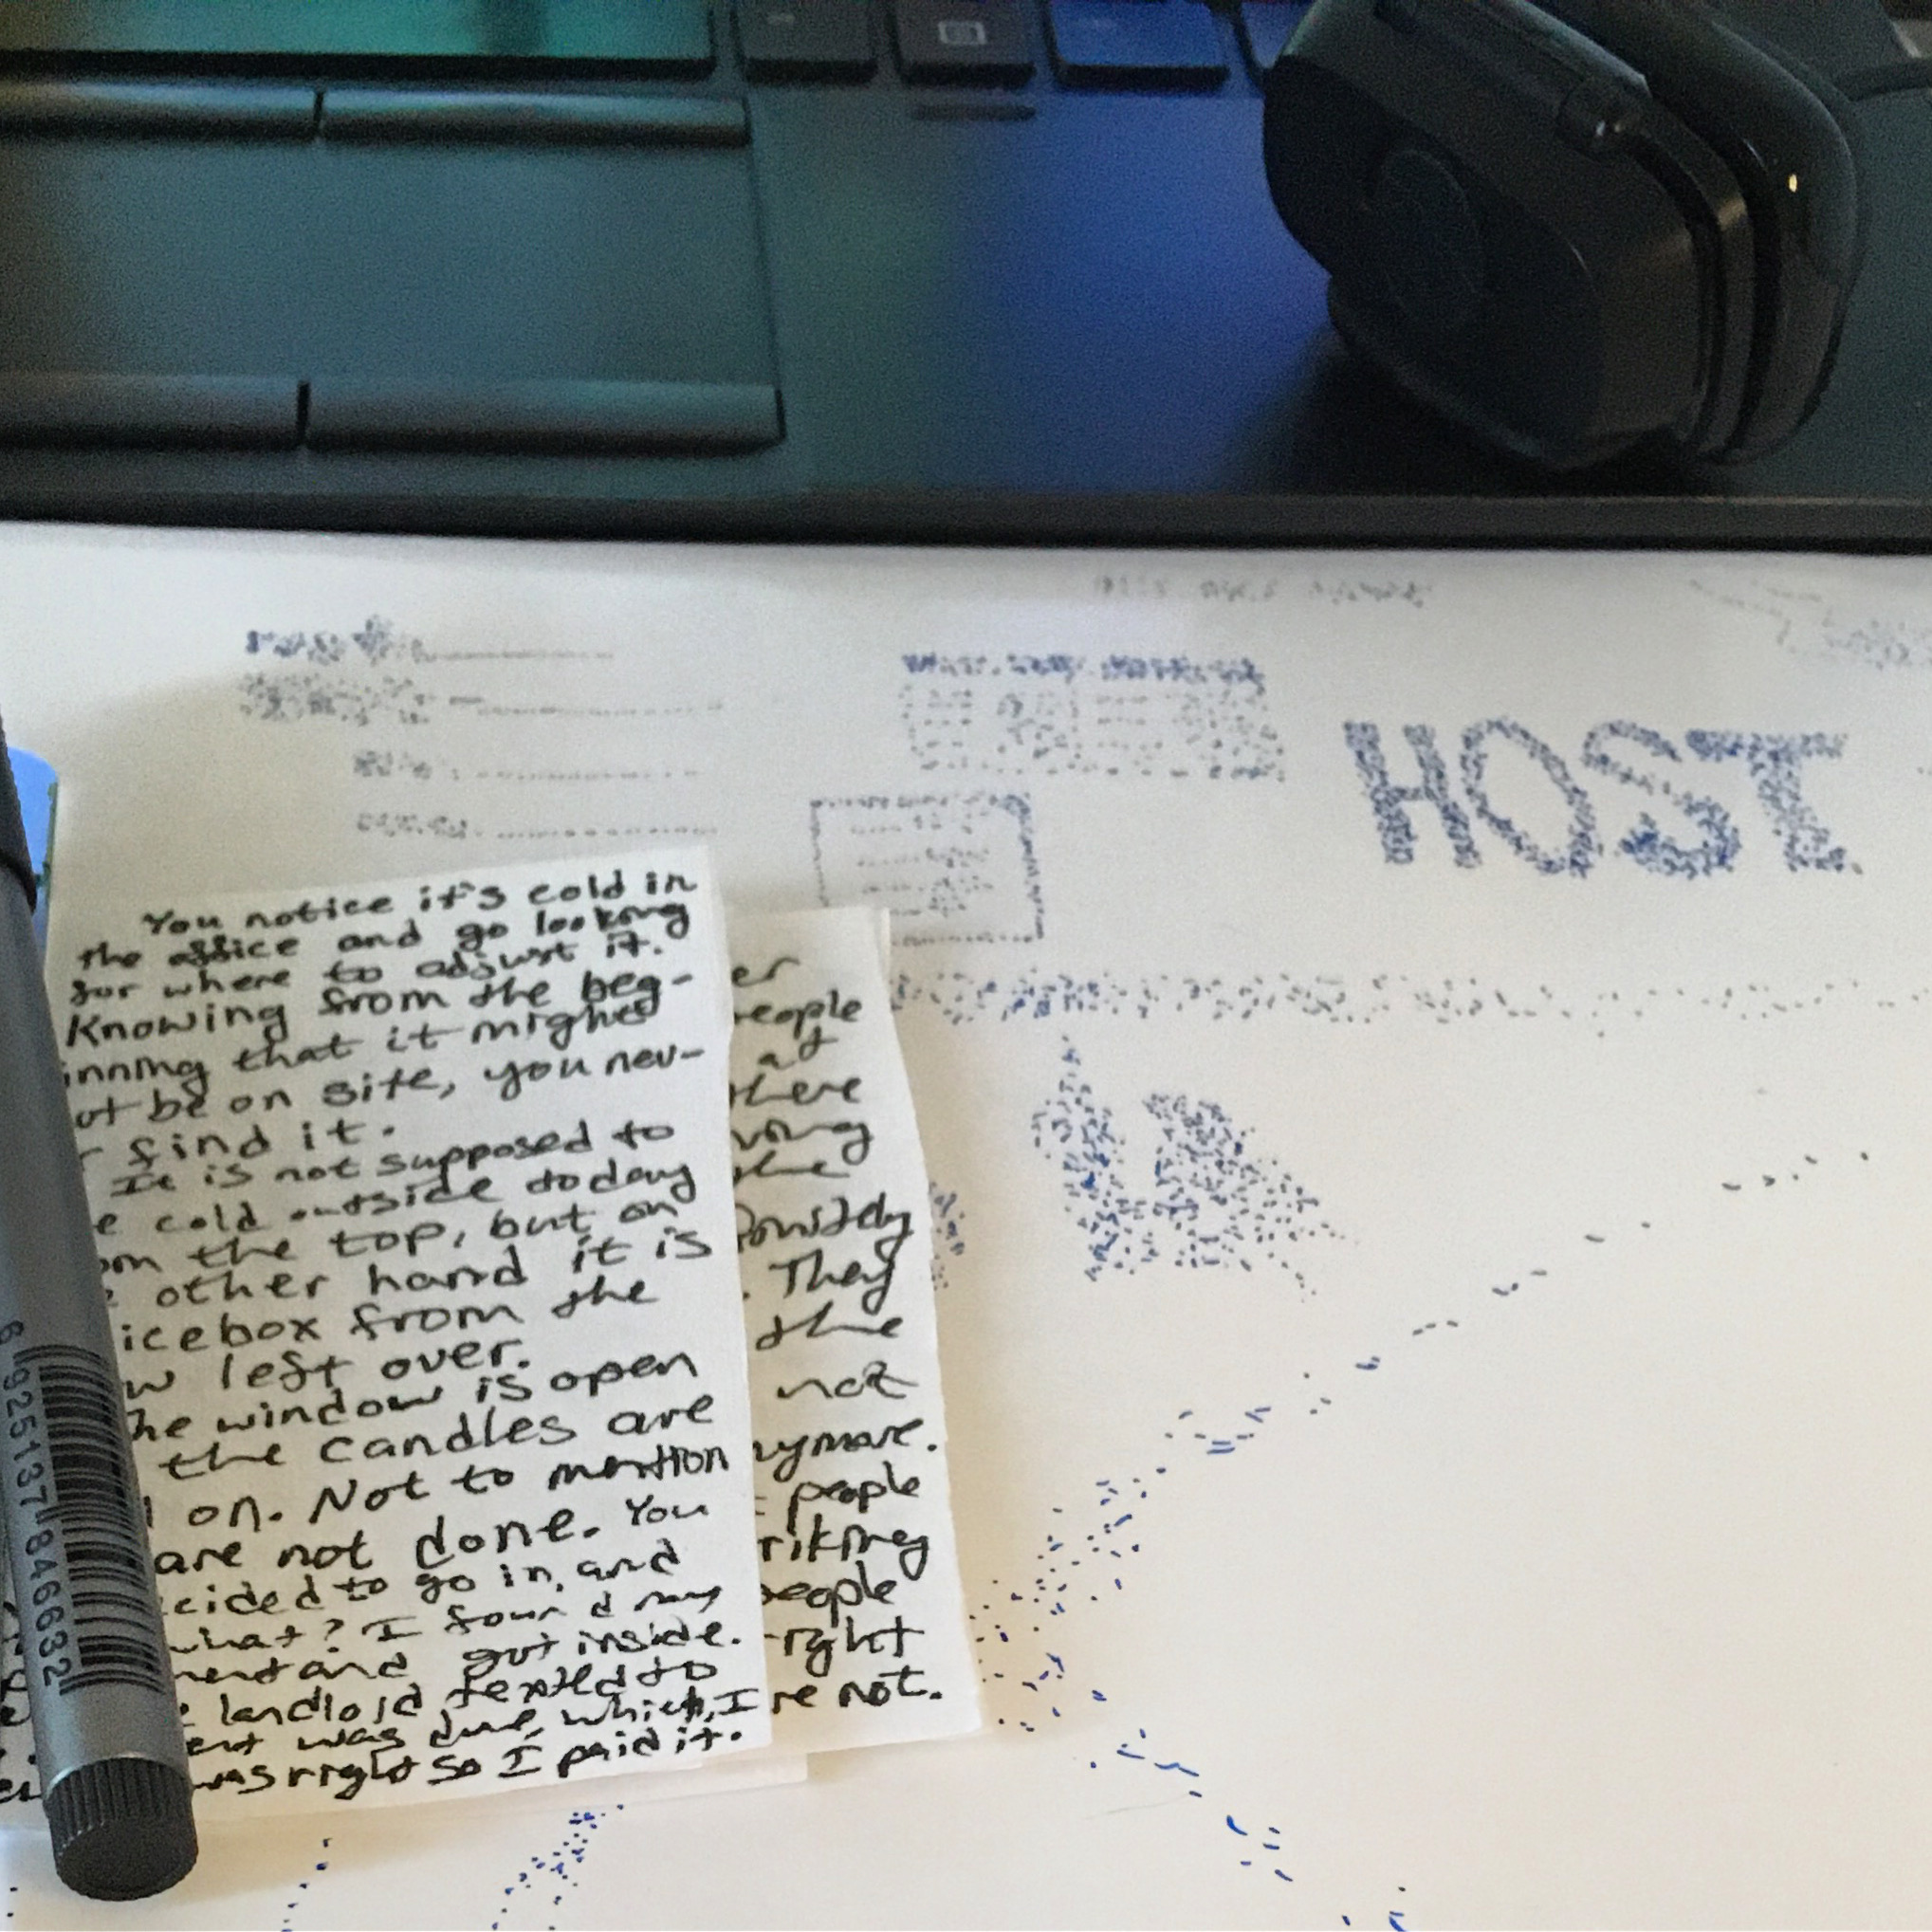 HOST.
You notice it's cold in
the office and go looking
for where to adjust it.
Knowing from the beg-
inning that it might
ot be on site, you nev-
r find it.
It is not supposed to
e cold outside today
om the top, but on
e other hand it is
icebox from the
w left over.
he window is open
the candles are
l on. Not to mention
are not done. You
cided to go in, and
what? I found my
ment and got inside.
e landlord texted to
ent was due, which, I
was right so I paid it.
er
eople
at
there
the
. They
the
not
nymore.
people
riking
people
right
re not.
6 925137 846632